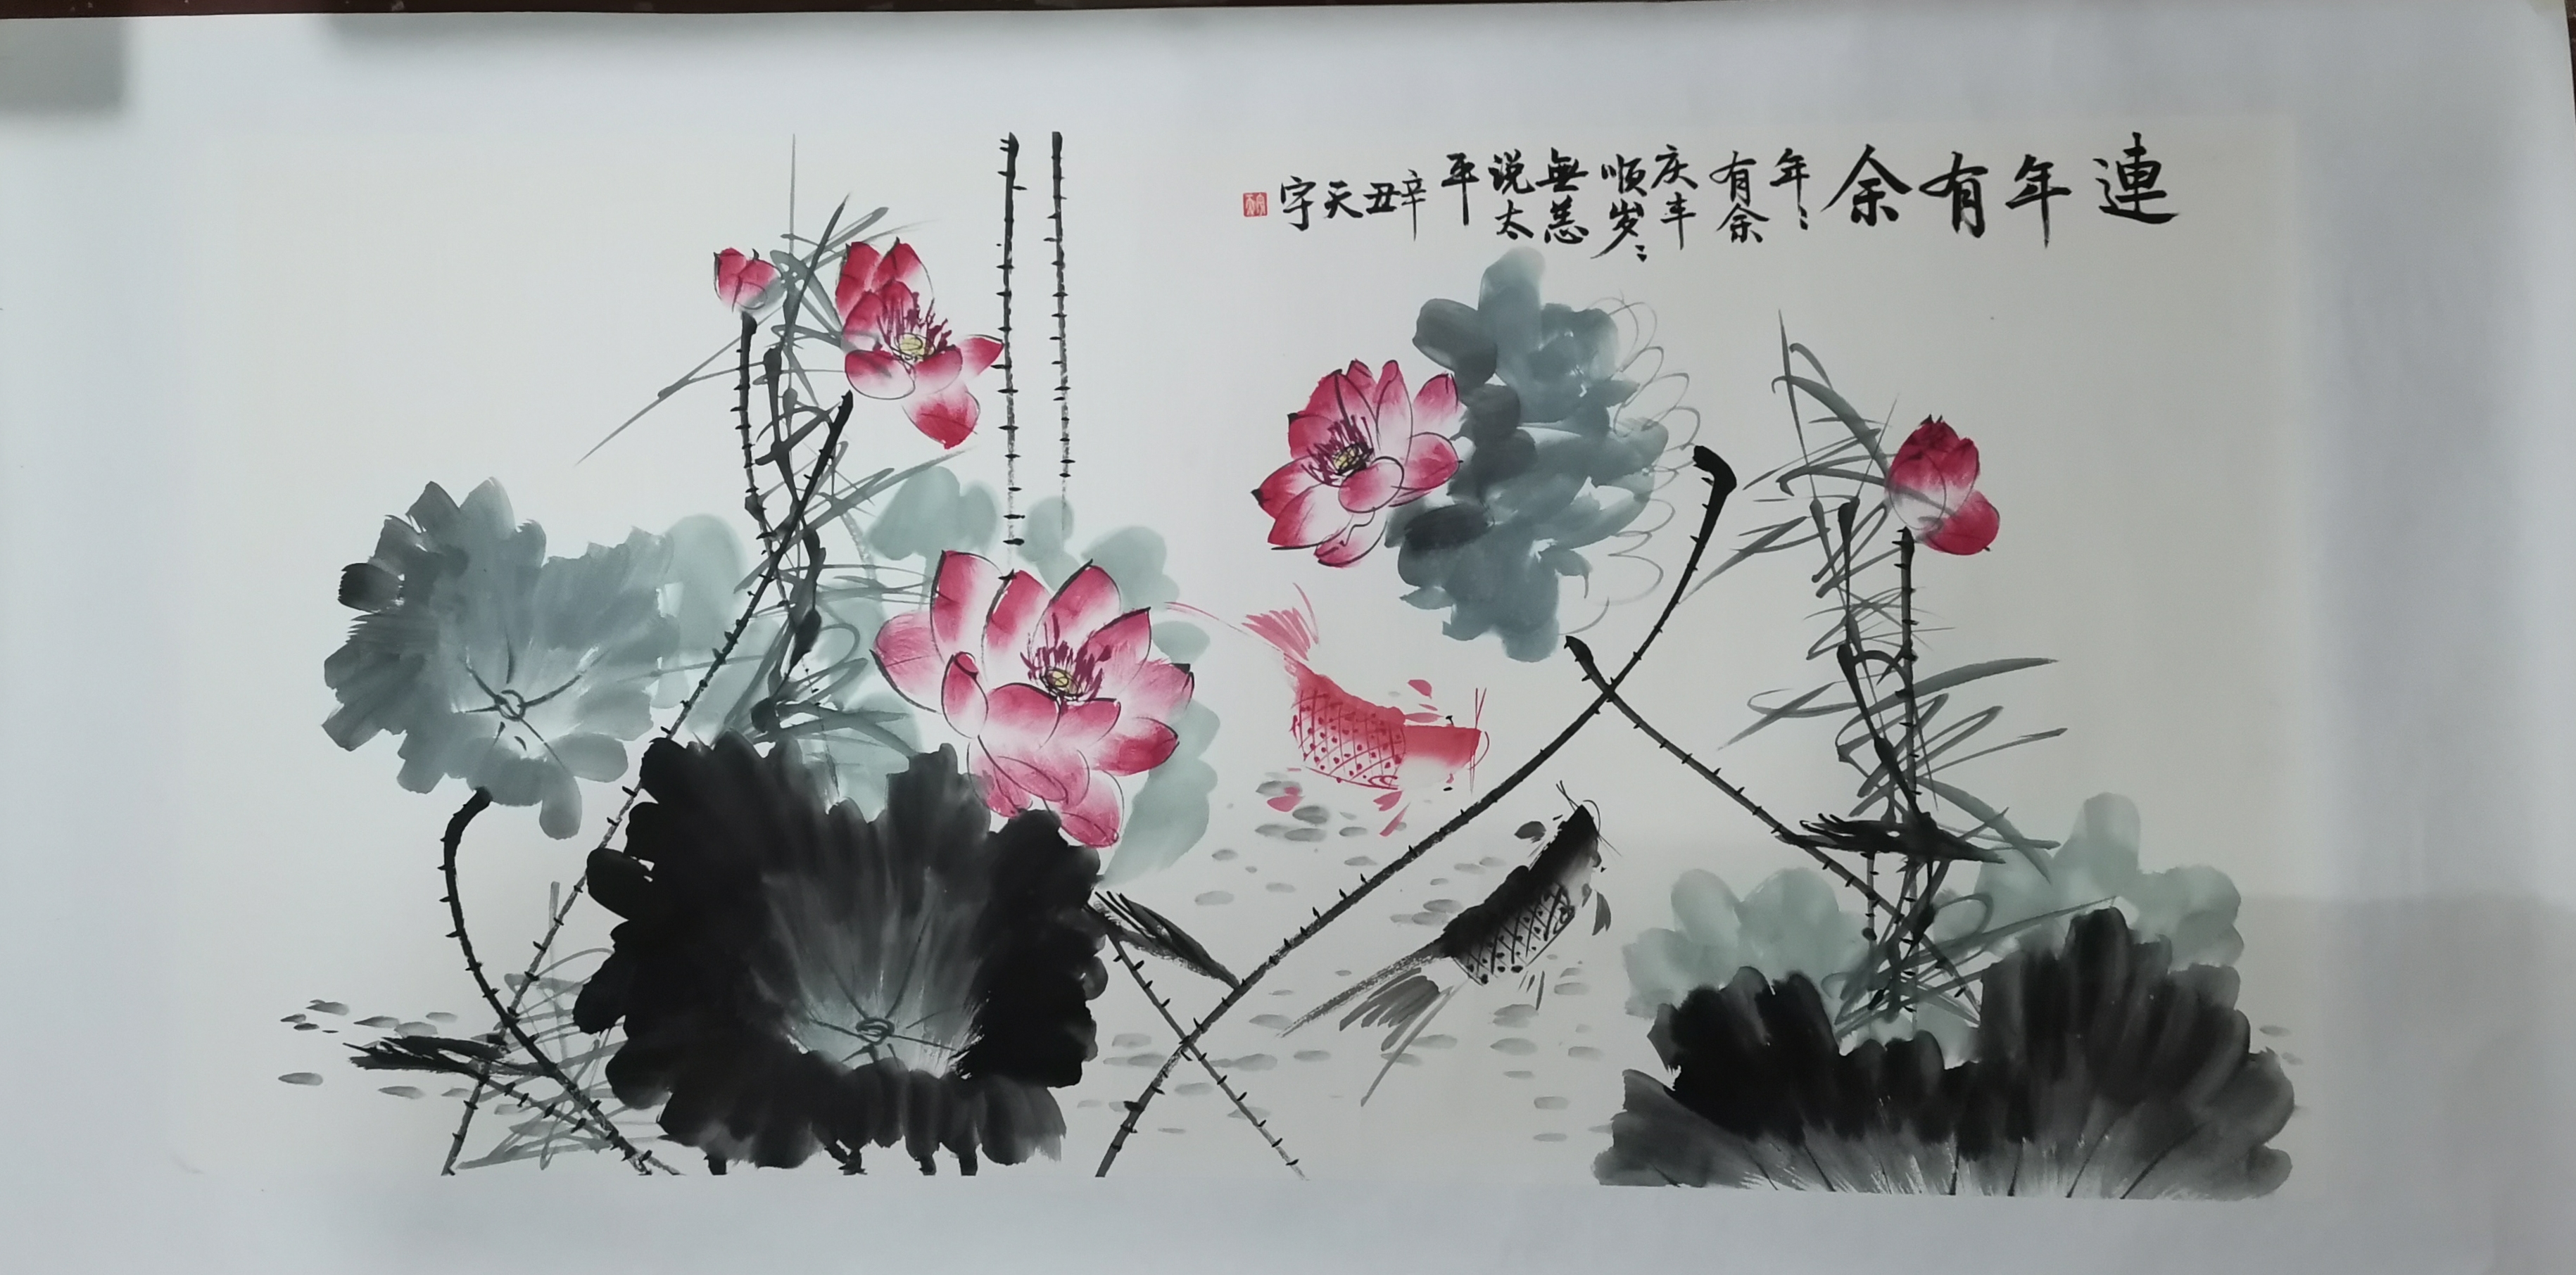 連年有余
年〻
有余
庆丰
顺岁〻
無恙
说太
平
辛丑天宇